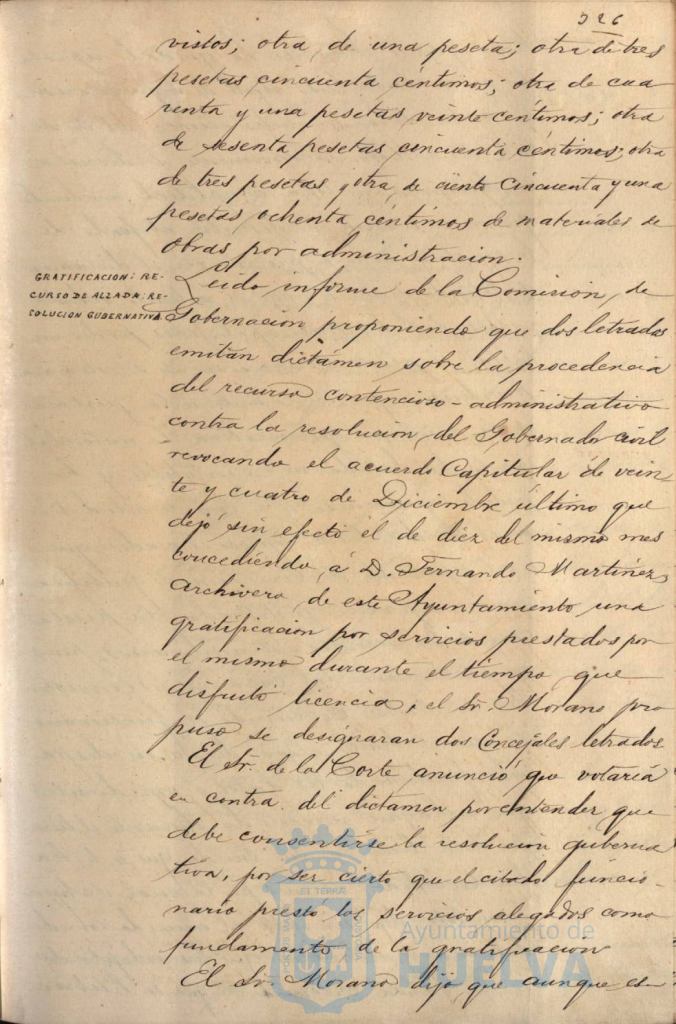 326
vistos; otra de una peseta; otra de tres
pesetas cincuenta céntimos; otra de cua
renta y una pesetas veinte céntimos; otra
de sesenta pesetas cincuenta céntimos; otra
de tres pesetas y otra de ciento cincuenta y una
pesetas ochenta céntimos de materiales de
obras por administracion.
GRATIFICACION: RE-
CURSO DE ALZADA: RE-
SOLUCION GUBERNATIVA
Leido informe de la Comision de
Gobernacion proponiendo que dos letrados
emitan dictámen sobre la procedencia
del recurso contencioso-administrativo
contra la resolucion del Gobernador civil
revocando el acuerdo Capitular de vein
te y cuatro de Diciembre último que
dejó sin efecto el de diez del mismo mes
concediendo á D. Fernando Martinez,
Archivero de este Ayuntamiento una
gratificacion por servicios prestados por
el mismo durante el tiempo que
disfrutó licencia, el Sr. Morano pro
puso se designaran dos Concejales letrados
El Sr. de la Corte anunció que votaría
en contra del dictamen por entender que
debe consentirse la resolucion guberna
tiva, por ser cierto que el citado funcio-
nario prestó los servicios alegados como
fundamento de la gratificacion
El Sr. Morano dijo que aunque es-
Ayuntamiento de
HUELVA